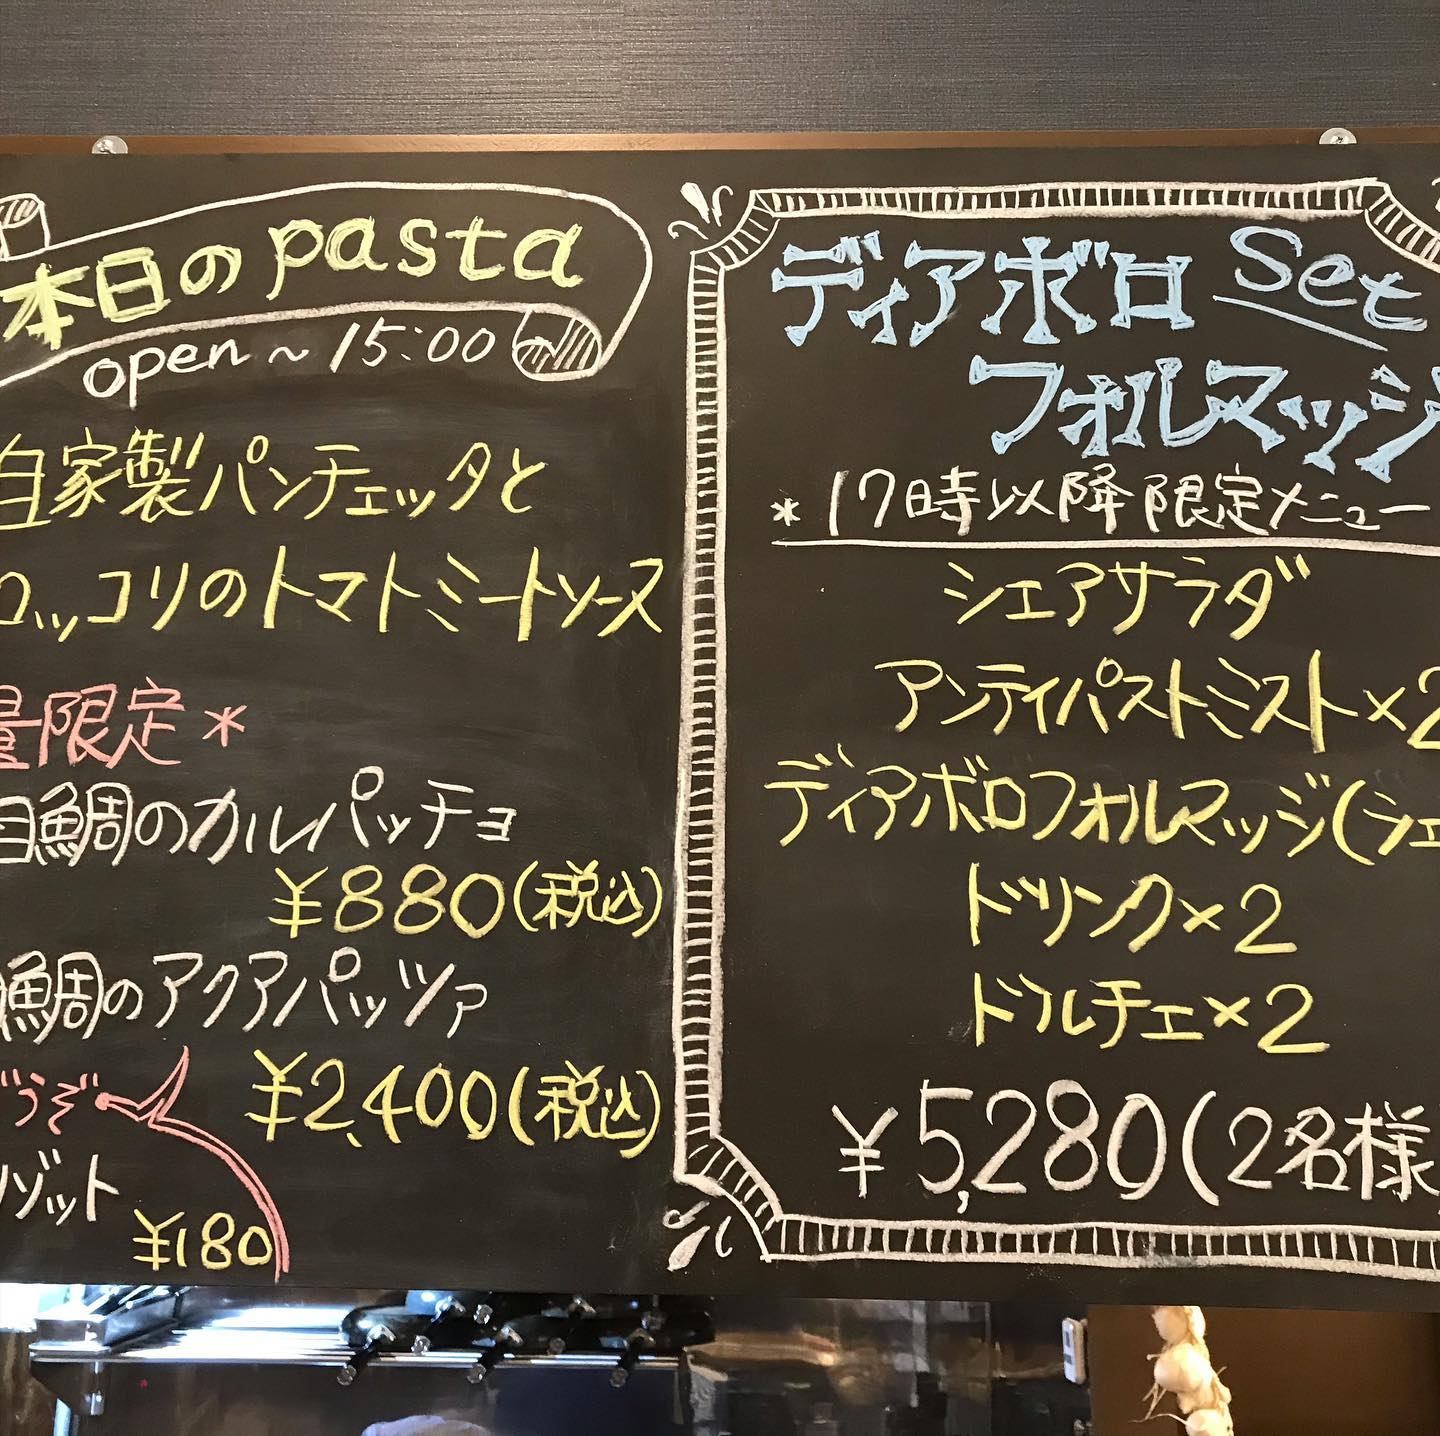 本日のpasta
open〜15:00
自家製パンチェッタと
ロッコリのトマトミートソース
量限定*
目鯛のカルパッチョ
¥880(税込)
鯛のアクアパッツァ
¥2,400(税込)
どうぞ
リゾット
¥180
ディアボロ Set
フォルマッジ
*17時以降限定メニュー
シェアサラダ
アンティパストミスト×2
ディアボロフォルマッジ(シェ
ドリンク×2
ドルチェ×2
¥5,280(2名様